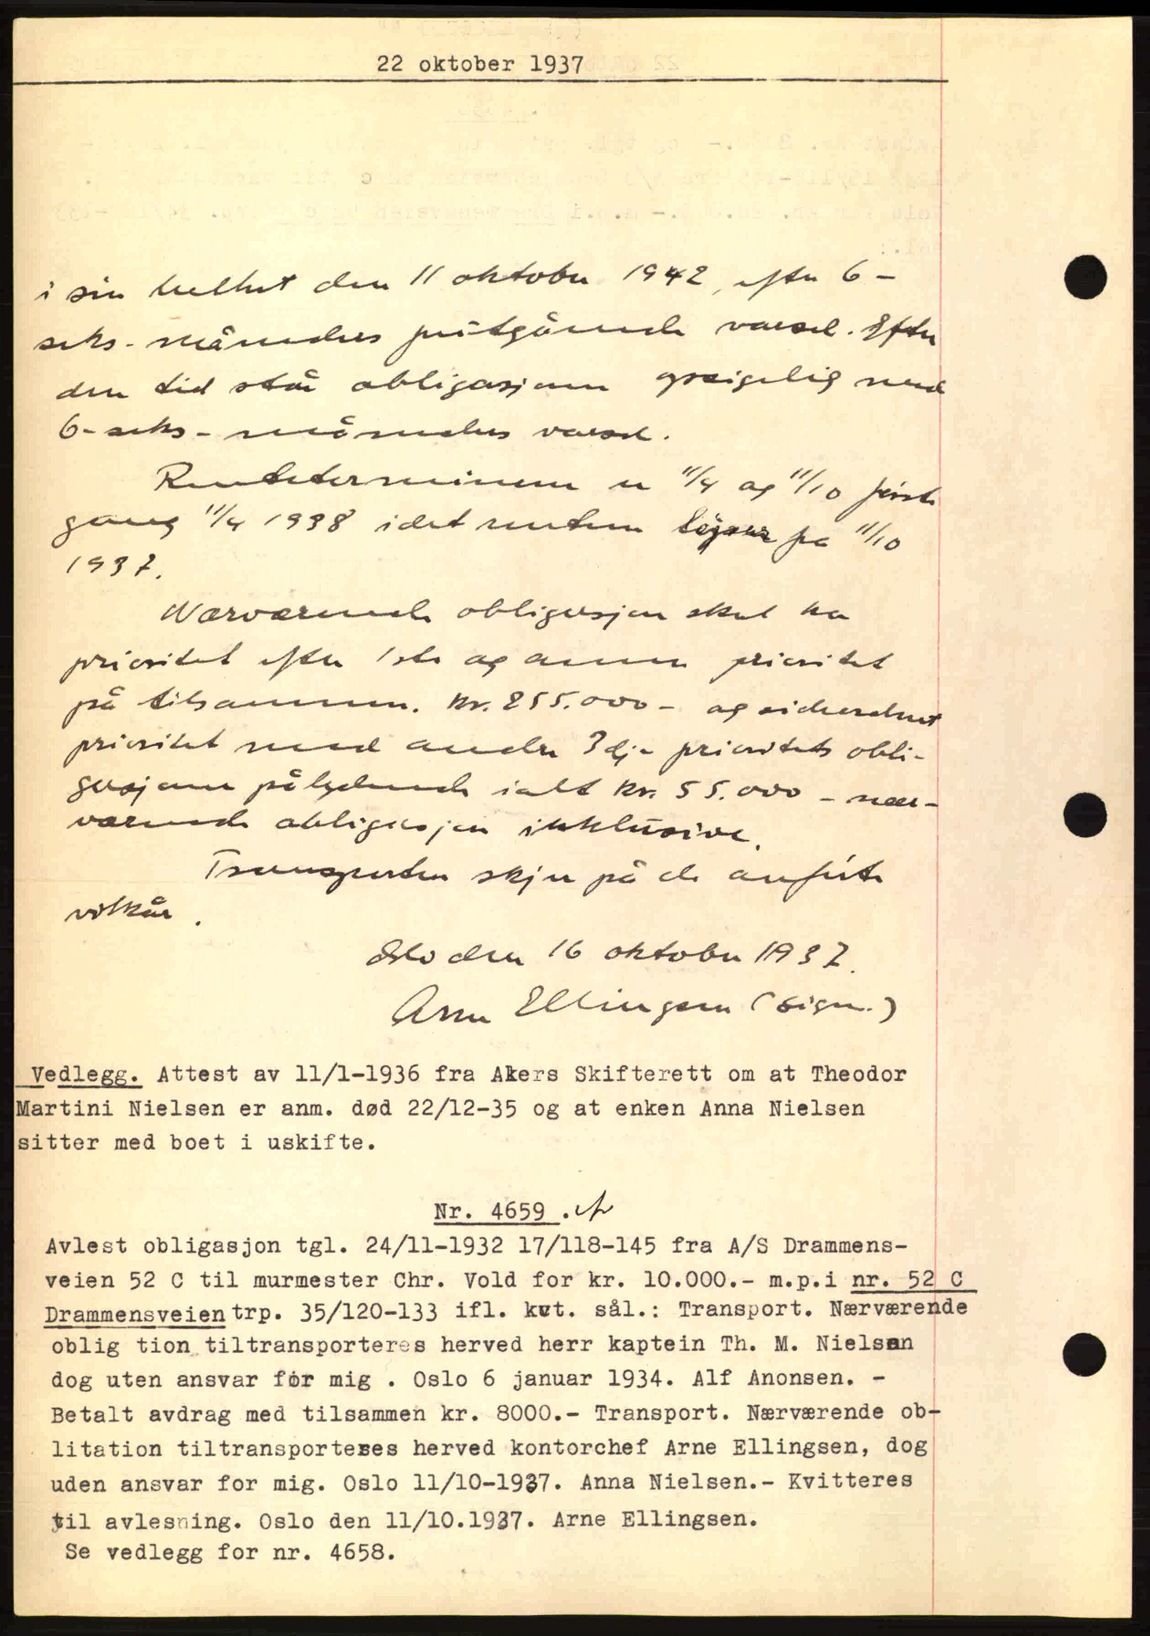 22 oktober 1937
i sin helhet den 11 oktober 1942, efter 6-
seks-måneders forutgående varsel. Efter
den tid står obligasjonen opsigelig med
6-seks-måneders varsel.
Renteterminen er 11/4 og 11/10 første
gang 11/4 1938 idet renten løper fra 11/10
1937.
Nærværende obligasjon skal ha
prioritet efter 1ste og annen prioritet
på tilsammen. kr. 255.000- og sideordnet
prioritet med andre 3dje prioritets obli-
gasjoner pålydende ialt kr. 55.000 - nær-
værende obligasjon inklusive.
Transporten skjer på de anførte
vilkår.
Oslo den 16 oktober 1937.
Arne Ellingsen (sign.)
Vedlegg. Attest av 11/1-1936 fra Akers Skifterett om at Theodor
Martini Nielsen er anm. død 22/12-35 og at enken Anna Nielsen
sitter med boet i uskifte.
Nr. 4659.
Avlest obligasjon tgl. 24/11-1932 17/118-145 fra A/S Drammens-
veien 52 C til murmester Chr. Vold for kr. 10.000.- m.p.i nr. 52 C
Drammensveien trp. 35/120-133 ifl. kvt. sål.: Transport. Nærværende
oblig tion tiltransporteres herved herr kaptein Th. M. Nielsen
dog uten ansvar for mig . Oslo 6 januar 1934. Alf Anonsen. -
Betalt avdrag med tilsammen kr. 8000.- Transport. Nærværende ob-
litation tiltransporteres herved kontorchef Arne Ellingsen, dog
uden ansvar for mig. Oslo 11/10-1937. Anna Nielsen.- Kvitteres
til avlesning. Oslo den 11/10.1937. Arne Ellingsen.
Se vedlegg for nr. 4658.